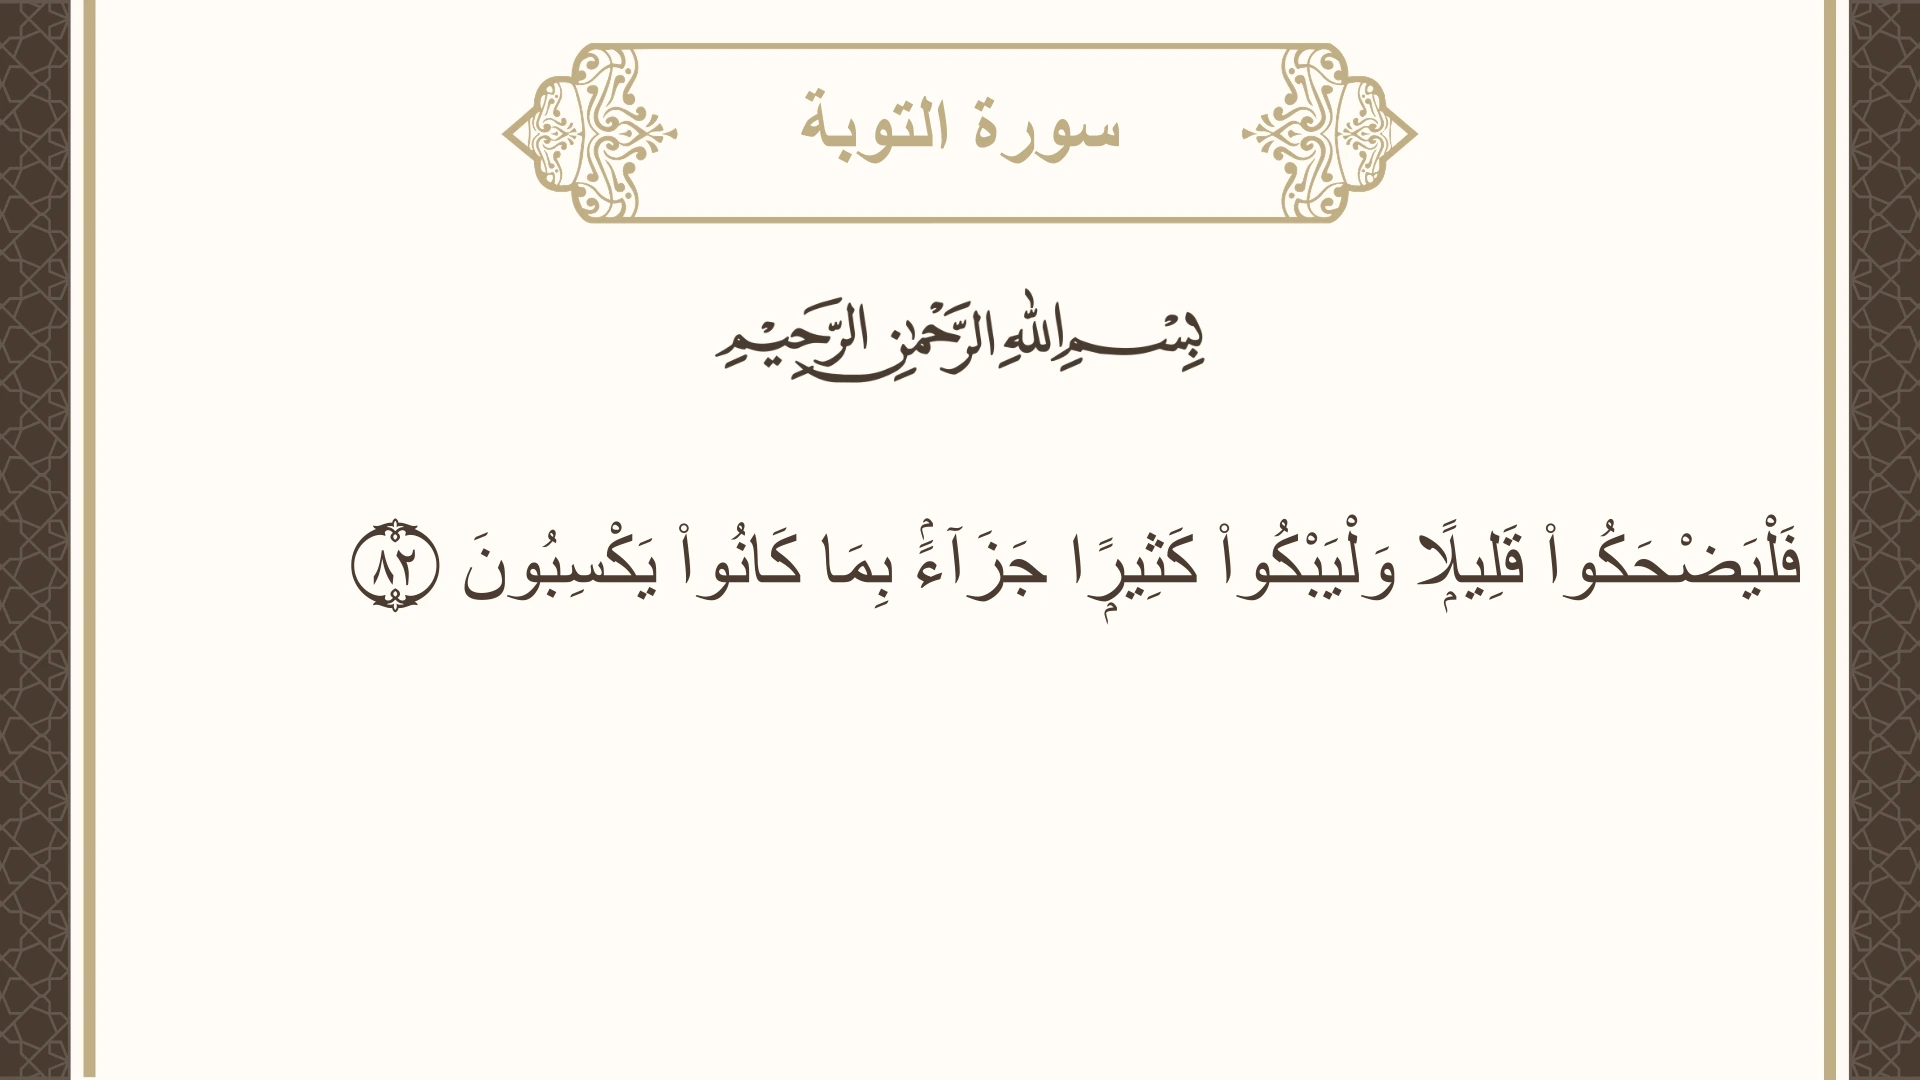 سورة التوبة
بِسْمِ اللهِ الرَّحْمٰنِ الرَّحِيْمِ
فَلْيَضْحَكُوا۟ قَلِيلًۭا وَلْيَبْكُوا۟ كَثِيرًۭا جَزَآءًۢ بِمَا كَانُوا۟ يَكْسِبُونَ ٨٢